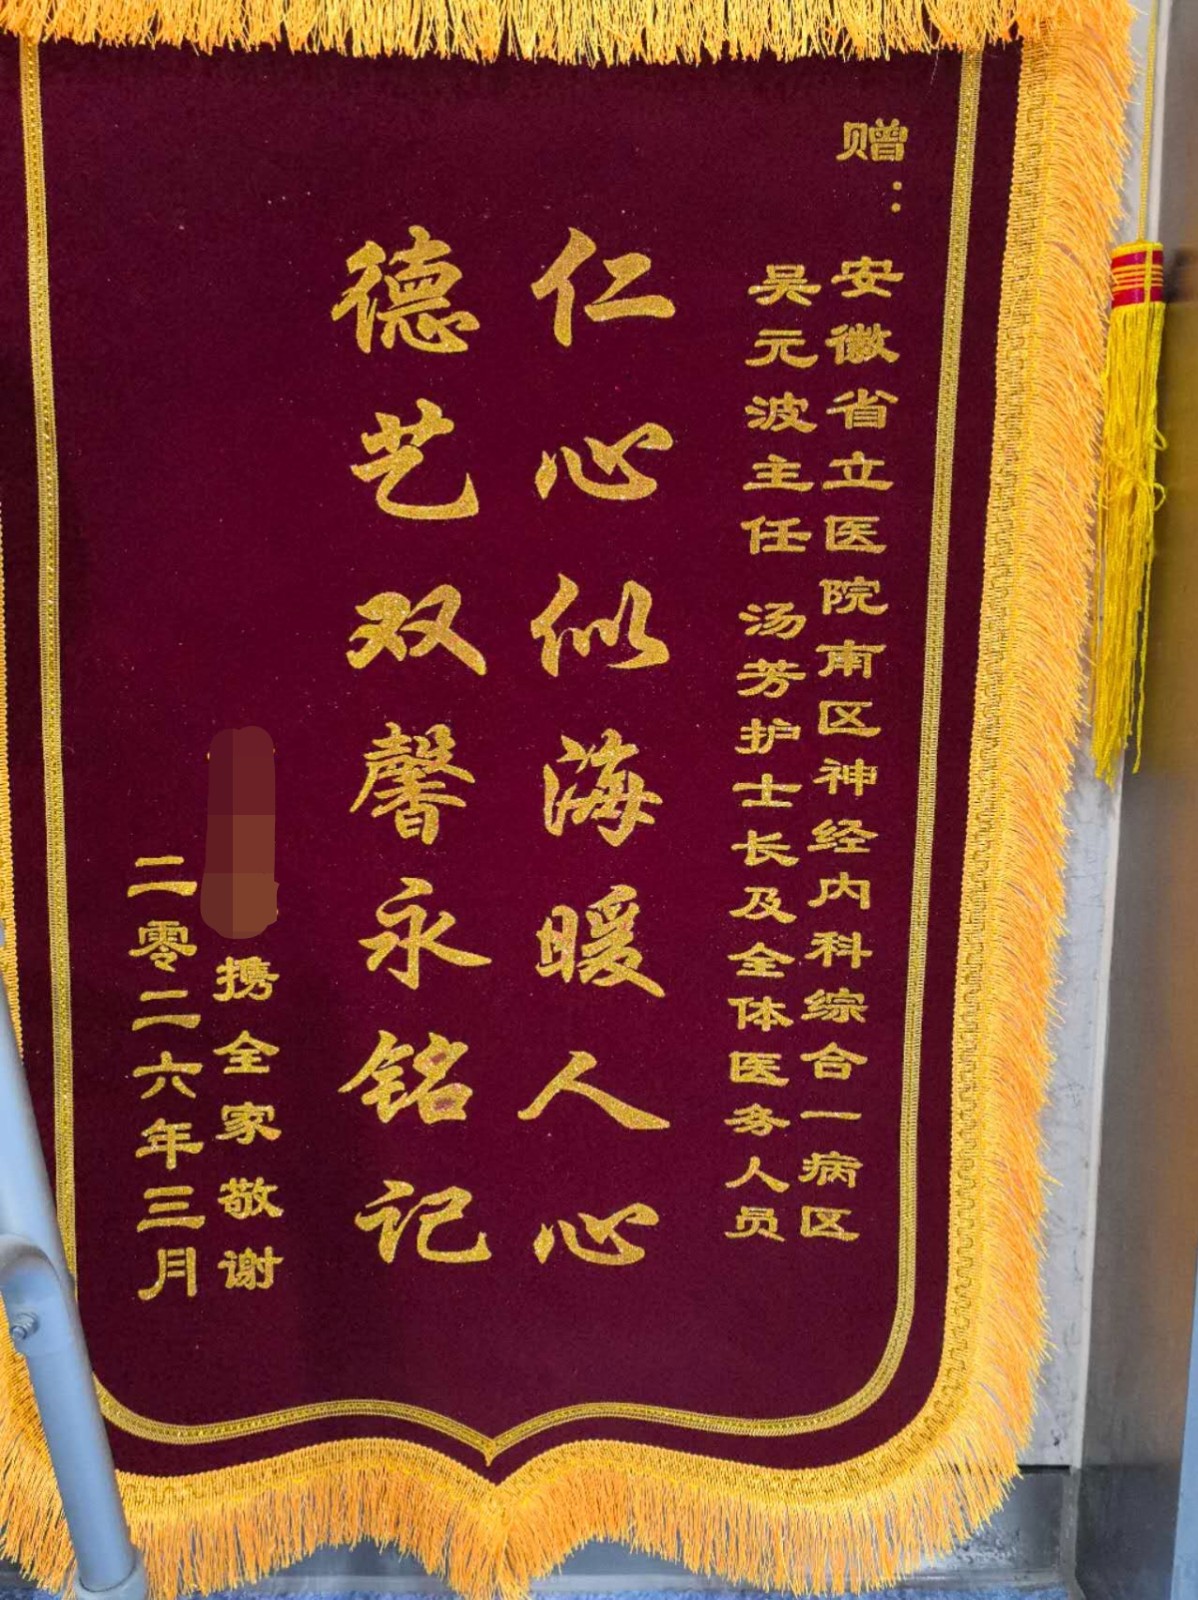 赠：
安徽省立医院南区神经内科综合一病区
吴元波主任 汤芳护士长及全体医务人员
仁心似海暖人心
德艺双馨永铭记
携全家敬谢
二零二六年三月